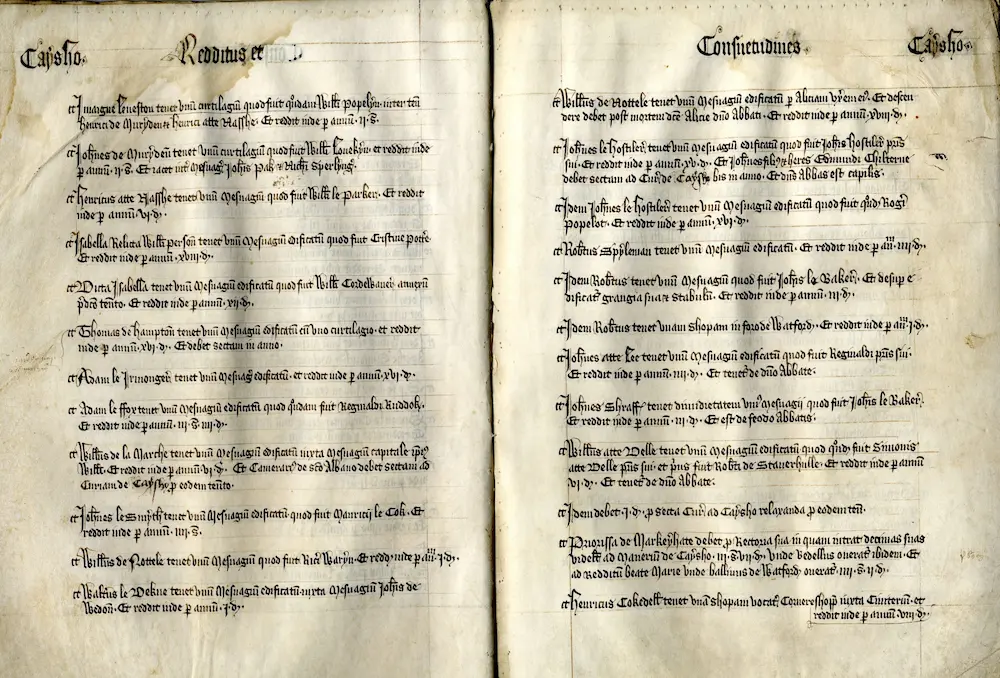 Caysho.
Redditus et
Imargne Leueston tenet vnū curtilagiū quod fuit q̄ndam Willi Popeheyn inter teñ
henrici de Muryden & henrici atte Nasshe. Et reddit inde ꝑ annū. ii. s̄.
Joh̄nes de Muryden tenet vnū curtilagiū quod fuit Willi Louekyn. et reddit inde
ꝑ annū. ii. s̄. Et iacet int̄ Mesuag̃ Joh̄is Pak & Rich̄i Sperlyng.
henricus atte Nasshe tenet vnū Mesuagiū quod fuit Willi le Parker. Et reddit
inde ꝑ annū. vi. d̄.
Isabella Relicta Willi Person tenet vnū Mesuagiū edificatū quod fuit Cristine Potte.
Et reddit inde ꝑ annū. xviii. d̄.
Dicta Isabella tenet vnū Mesuagiū edificatū quod fuit Willi Cordewaner
p̄dc̄o ten̄to. Et reddit inde ꝑ annū. xii. d̄.
Thomas de hampton tenet vnū Mesuagiū edificatū cū vno curtilagio. et reddit
inde ꝑ annū. xvi. d̄. Et debet sectam in anno.
Adam le Irmonger tenet vnū Mesuag̃ edificatū. et reddit inde ꝑ annū. xvi. d̄.
Adam le ffox tenet vnū Mesuagiū edificatū quod q̄ndam fuit Reginaldi Ruddok.
Et reddit inde ꝑ annū. iii. s̄. iiii. d̄.
Will̄us de la Marche tenet vnū Mesuagiū edificatū iuxta Mesuagiū capitale ip̄ius
Willi. Et reddit inde ꝑ annū. vi. d̄. Et Camerar̄ de sc̄o Albano debet sectam ad
Curiam de Caysho ꝑ eodem ten̄to.
Joh̄nes le Smyth tenet vnū Mesuagiū edificatū quod fuit Mauricii le Cok. Et
reddit inde ꝑ annū. iiii. s̄.
Will̄us de Nottele tenet vnū Mesuagiū quod fuit Ric̄i Waryn. Et redd̄ inde ꝑ añ. i. d̄.
Walt̄us le Dekne tenet vnū Mesuagiū edificatū iuxta Mesuagiū Joh̄is de
Wedon. Et reddit inde ꝑ annū. i. d̄.
Consuetudines.
Caysho.
Will̄us de Nottele tenet vnū Mesuagiū edificatū ꝑ Aliciam vxorem ei. Et descen
dere debet post mortem dc̄e Alicie dn̄o Abbati. Et reddit inde ꝑ annū. xviii. d̄.
Joh̄nes le hostiler̄ tenet vnū Mesuagiū edificatū quod fuit Joh̄is hostiler̄ pr̄is
sui. Et reddit inde ꝑ annū. xv. d̄. Et Joh̄nes filius & heres Edmundi Chilterne
debet sectam ad Cur̄ de Caysho bis in anno. Et dn̄s Abbas est capit̄lis.
Idem Joh̄nes le hostiler̄ tenet vnū Mesuagiū edificatū quod fuit q̄nd̄ Rog̃i
Popelot. Et reddit inde ꝑ annū. xvi. d̄.
Rob̄tus Spyleman tenet vnū Mesuagiū edificatū. Et reddit inde ꝑ añ. iiii. d̄.
Idem Rob̄tus tenet vnū Mesuagiū quod fuit Joh̄is le Baker̄. Et desup e
dificat̄ grangia sua & stabulū. Et reddit inde ꝑ annū. iii. d̄.
Idem Rob̄tus tenet vnam shopam in foro de Watford̄. Et reddit inde ꝑ añ. i. d̄.
Joh̄nes atte Lee tenet vnū Mesuagiū edificatū quod fuit Reginaldi pr̄is sui.
Et reddit inde ꝑ annū. iiii. d̄. Et tenet̄ de dn̄o Abbate.
Joh̄nes Shraff tenet dimidietatem vni Mesuagii quod fuit Joh̄is le Baker̄.
Et reddit inde ꝑ annū. iii. d̄. Et est de feodo Abbatis.
Will̄us atte Delle tenet vnū Mesuagiū edificatū quod q̄nd̄ fuit Simonis
atte Delle pr̄is sui. et p̄us fuit Rob̄ti de Stauerhulle. Et reddit inde ꝑ annū
vi. d̄. Et tenet̄ de dn̄o Abbate.
Idem debet. i. d̄. ꝑ secta Cur̄ ad Caysho relaxanda ꝑ eodem teñ.
Priorissa de Markeyhate debet ꝑ Rectoria sua in quam intrat decimas suas
videlt̄ ad Maneriū de Caysho. iii. s̄. vii. d̄. vnde Bedellus onerat̄ ibidem. Et
ad Redditū beate Marie vnde balliuus de Watford̄ onerat̄. iiii. s̄. ii. d̄.
henricus Cokedell̄ tenet vnā shopam vocat̄ Cornereshopp iuxta Cimiteriū. et
reddit inde ꝑ annū. viii. d̄.